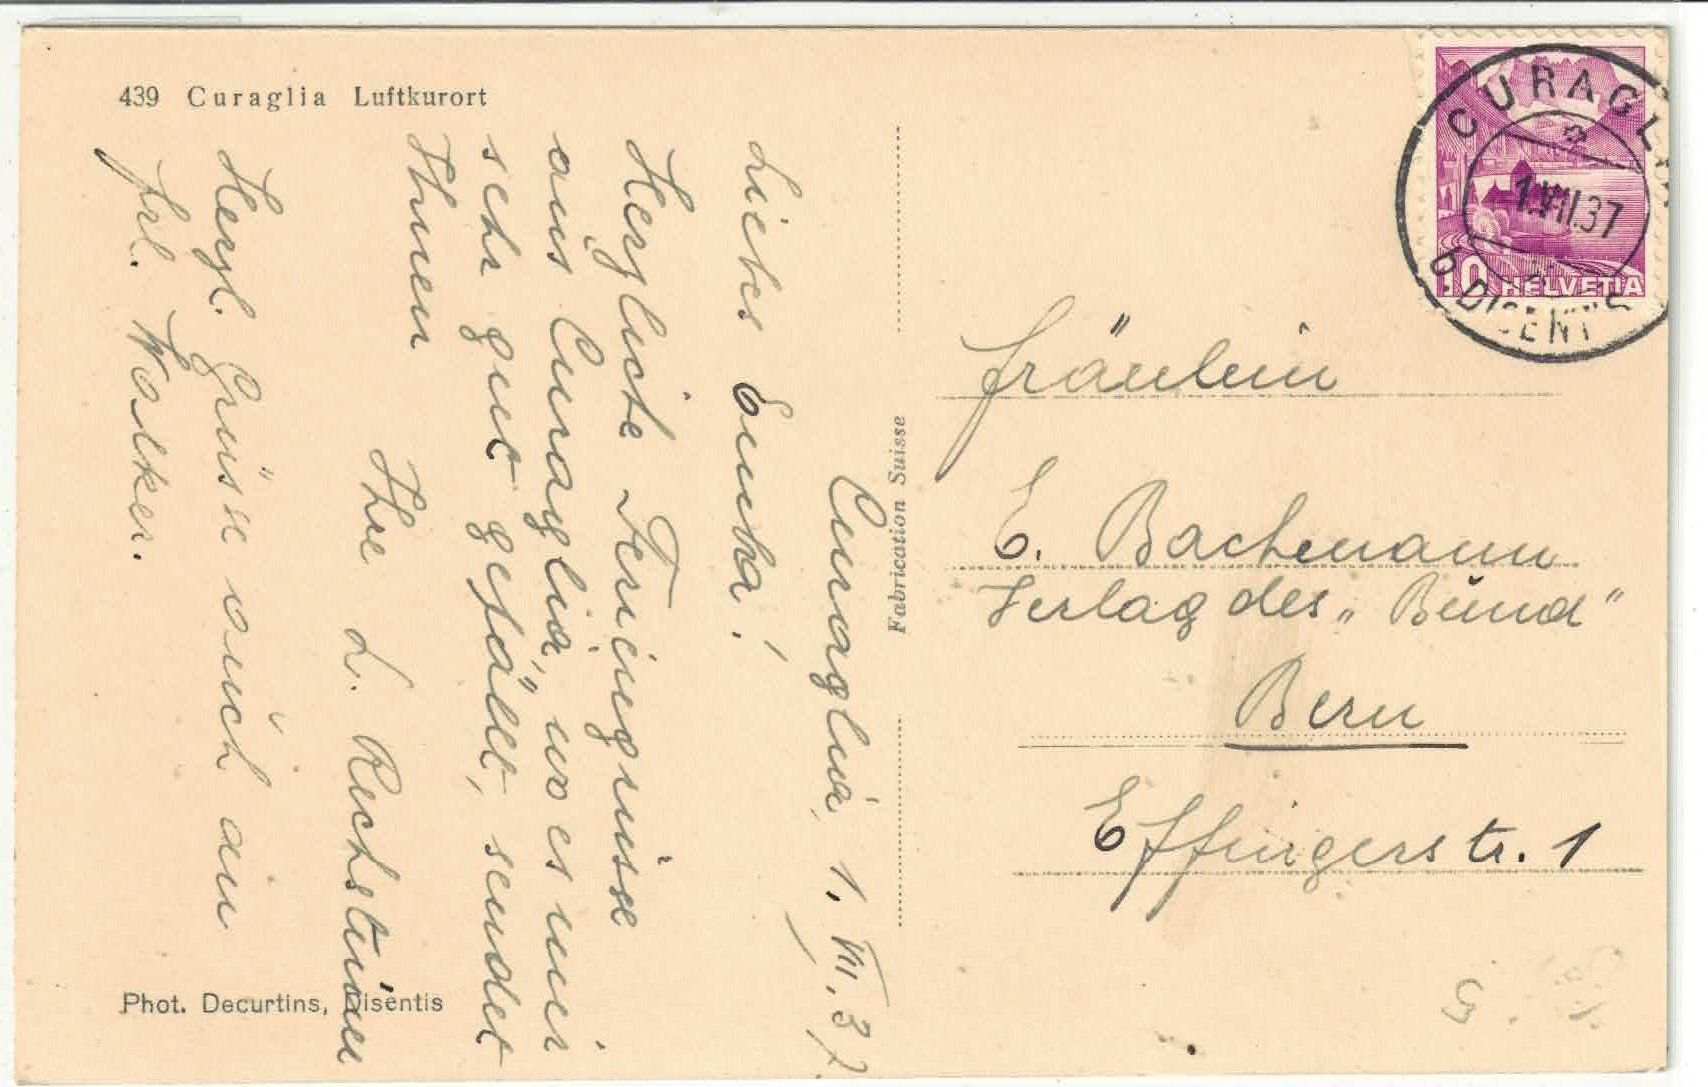 439 Curaglia Luftkurort
Curaglia, 1. VIII. 37
Liebes
Herzliche Feriengrüsse
aus Curaglia, wo es mir
sehr gut gefällt, sendet
Ihnen
Ihre L. Rechsteiner
Herzl. Grüsse auch an
Frl. Walker.
Phot. Decurtins, Disentis
Fabrication Suisse
CURAGLIA
1.VIII.37
b. DISENTIS
10 HELVETIA
Fräulein
E. Bachmann
Verlag des „Bund"
Bern
Effingerstr. 1